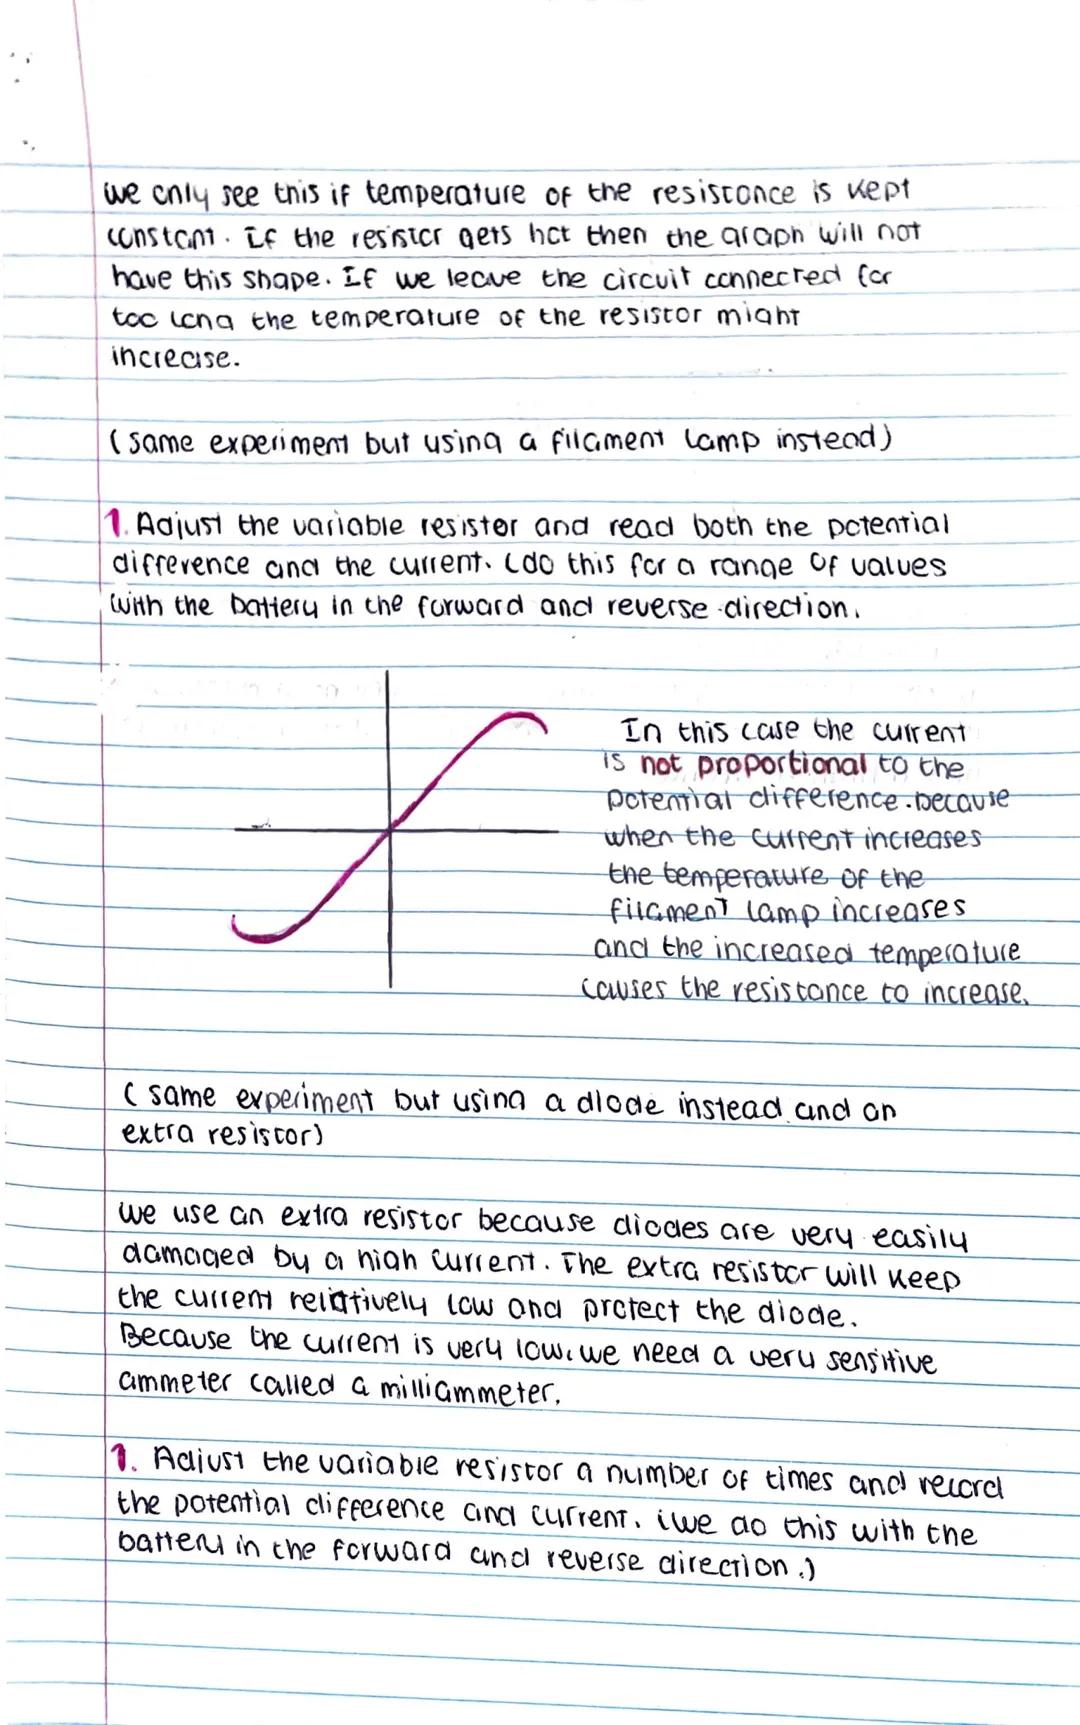 we only see this if temperature of the resistance is kept
constant. If the resistor gets hot then the graph will not
have this shape. If we leave the circuit connected for
too long the temperature of the resistor might
increase.
(same experiment but using a filament lamp instead)
1. Adjust the variable resistor and read both the potential
difference and the current. (do this for a range of values
with the battery in the forward and reverse direction.
In this case the current
is not proportional to the
potential difference. because
when the current increases
the temperature of the
filament lamp increases
and the increased temperature
causes the resistance to increase.
(same experiment but using a diode instead and an
extra resistor)
we use an extra resistor because diodes are very easily
damaged by a high current. The extra resistor will keep
the current relatively low and protect the diode.
Because the current is very low, we need a very sensitive
ammeter called a milliammeter.
1. Adjust the variable resistor a number of times and record
the potential difference and current. (we do this with the
battery in the forward and reverse direction.)